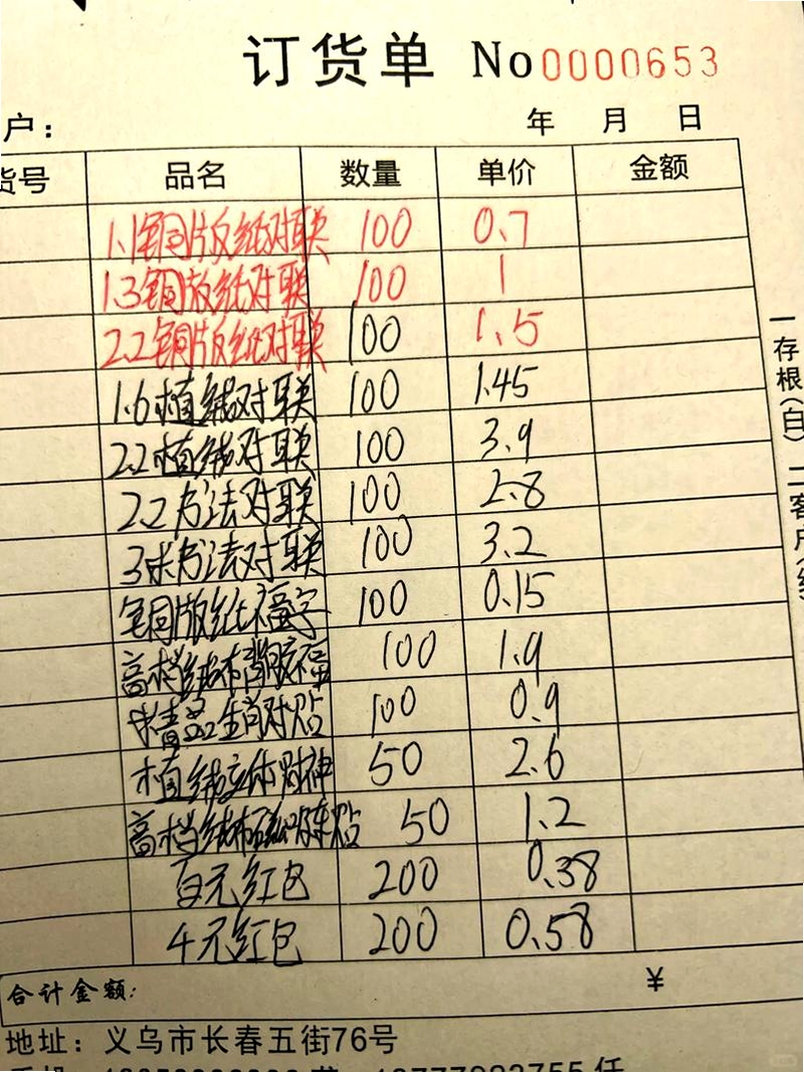 订货单 No0000653
户： 年 月 日
货号 品名 数量 单价 金额
1.1铜版纸对联 100 0.7
1.3铜版纸对联 100 1
2.2铜版纸对联 100 1.5
1.6植绒对联 100 1.45
2.2植绒对联 100 3.9
2.2书法对联 100 2.8
3米书法对联 100 3.2
铜版纸福字 100 0.15
高档绒布背胶福 100 1.9
精品生肖对贴 100 0.9
植绒立体财神 50 2.6
高档绒布 贴 50 1.2
百元红包 200 0.38
4元红包 200 0.58
合计金额： ¥
地址：义乌市长春五街76号
一存根(白) 二客户(红